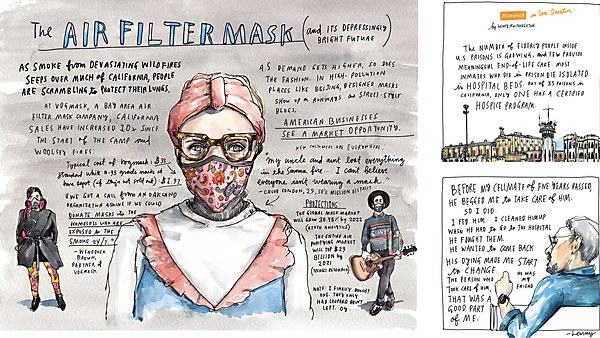 The AIR FILTER MASK (and its depressingly
bright future)
As smoke from devastating wildfires
seeps over much of California, people
are scrambling to protect their lungs.
At Vogmask, a Bay Area air
filter mask company, California
sales have increased 10x since
the start of the Camp and
Woolsey fires.
Typical cost of Vogmask: $33
standard white N-95 grade masks at
"We got a call from an Oakland
organization asking if we could
donate masks to the
homeless who are
exposed to the
smoke 24/7."
- Wendover
Brown,
partner of
Vogmask
As demand gets higher, so does
the fashion. In high-pollution
places like Beijing, designer masks
show up on runways and street-style
blogs.
American businesses
see a market opportunity.
"My uncle and aunt lost everything
in the Sonoma fire... I can't believe
everyone isn't wearing a mask."
- Chloe London, 29, SF's Mission District
Projections:
The global mask market
will grow 20% by 2022
The entire air
purifying market
will top $29
billion by
2021
Note: I finally bought
one. They only
had leopard print
left. Oy.
in San Quentin
by Wendy MacNaughton
The number of elderly people inside
U.S. prisons is growing, and few provide
meaningful end-of-life care. Most
inmates who die in prison die isolated
in hospital beds. Out of 35 prisons in
California, only one has a certified
hospice program.
Before my cellmate of five years passed,
he begged me to take care of him.
So I did.
I fed him. I cleaned him up
when he had to go to the hospital
he fought them.
He wanted to come back
His dying made me start
to change.
The person who
took care of him,
that was a
good part
of me.
He was
my
friend